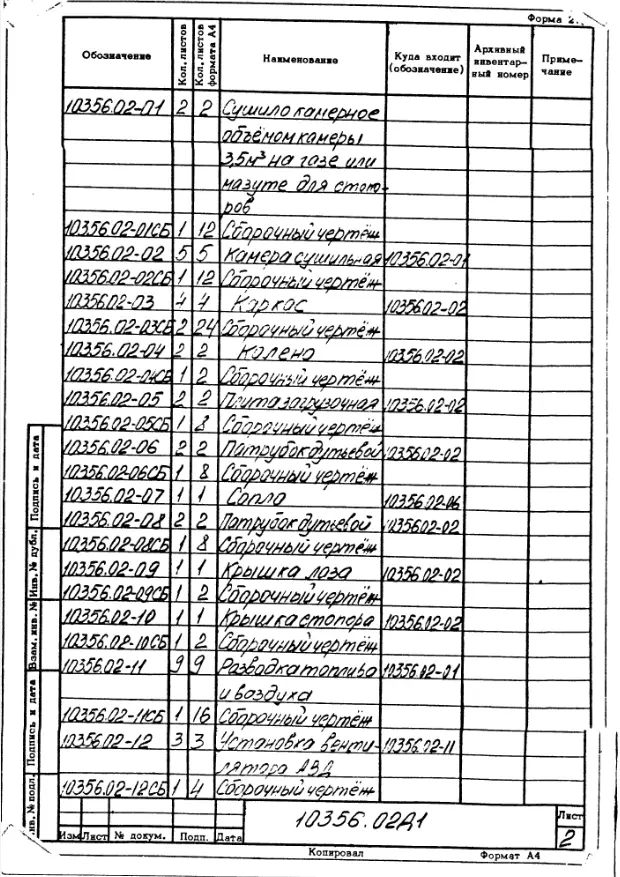 Форма 2.
Обозначение Кол. листов Кол. листов формата А4 Наименование Куда входит (обозначение) Архивный инвентар-ный номер Приме-чание
10356.02-01 2 2 Сушило камерное
объёмом камеры
3,5м³ на газе или
мазуте для стопо-
ров
10356.02-01СБ 1 12 Сборочный чертёж
10356.02-02 5 5 Камера сушильная 10356.02-01
10356.02-02СБ 1 12 Сборочный чертёж
10356.02-03 4 4 Каркас 10356.02-02
10356.02-03СБ 2 24 Сборочный чертёж
10356.02-04 2 2 Колено 10356.02-02
10356.02-04СБ 1 2 Сборочный чертёж
10356.02-05 2 2 Плита загрузочная 10356.02-02
10356.02-05СБ 1 8 Сборочный чертёж
10356.02-06 2 2 Патрубок дутьевой 10356.02-02
10356.02-06СБ 1 8 Сборочный чертёж
10356.02-07 1 1 Сопло 10356.02-06
10356.02-08 2 2 Патрубок дутьевой 10356.02-02
10356.02-08СБ 1 8 Сборочный чертёж
10356.02-09 1 1 Крышка лаза 10356.02-02
10356.02-09СБ 1 2 Сборочный чертёж
10356.02-10 1 1 Крышка стопора 10356.02-02
10356.02-10СБ 1 2 Сборочный чертёж
10356.02-11 9 9 Разводка топлива 10356.02-01
и воздуха
10356.02-11СБ 1 16 Сборочный чертёж
10356.02-12 3 3 Установка венти- 10356.02-11
лятора АВД
10356.02-12СБ 1 4 Сборочный чертёж
Подпись и дата
Инв. № дубл.
Взам. инв. №
Подпись и дата
нв. № подл.
Изм Лист № докум. Подп. Дата
10356.02Д1
Лист
2
Копировал Формат А4